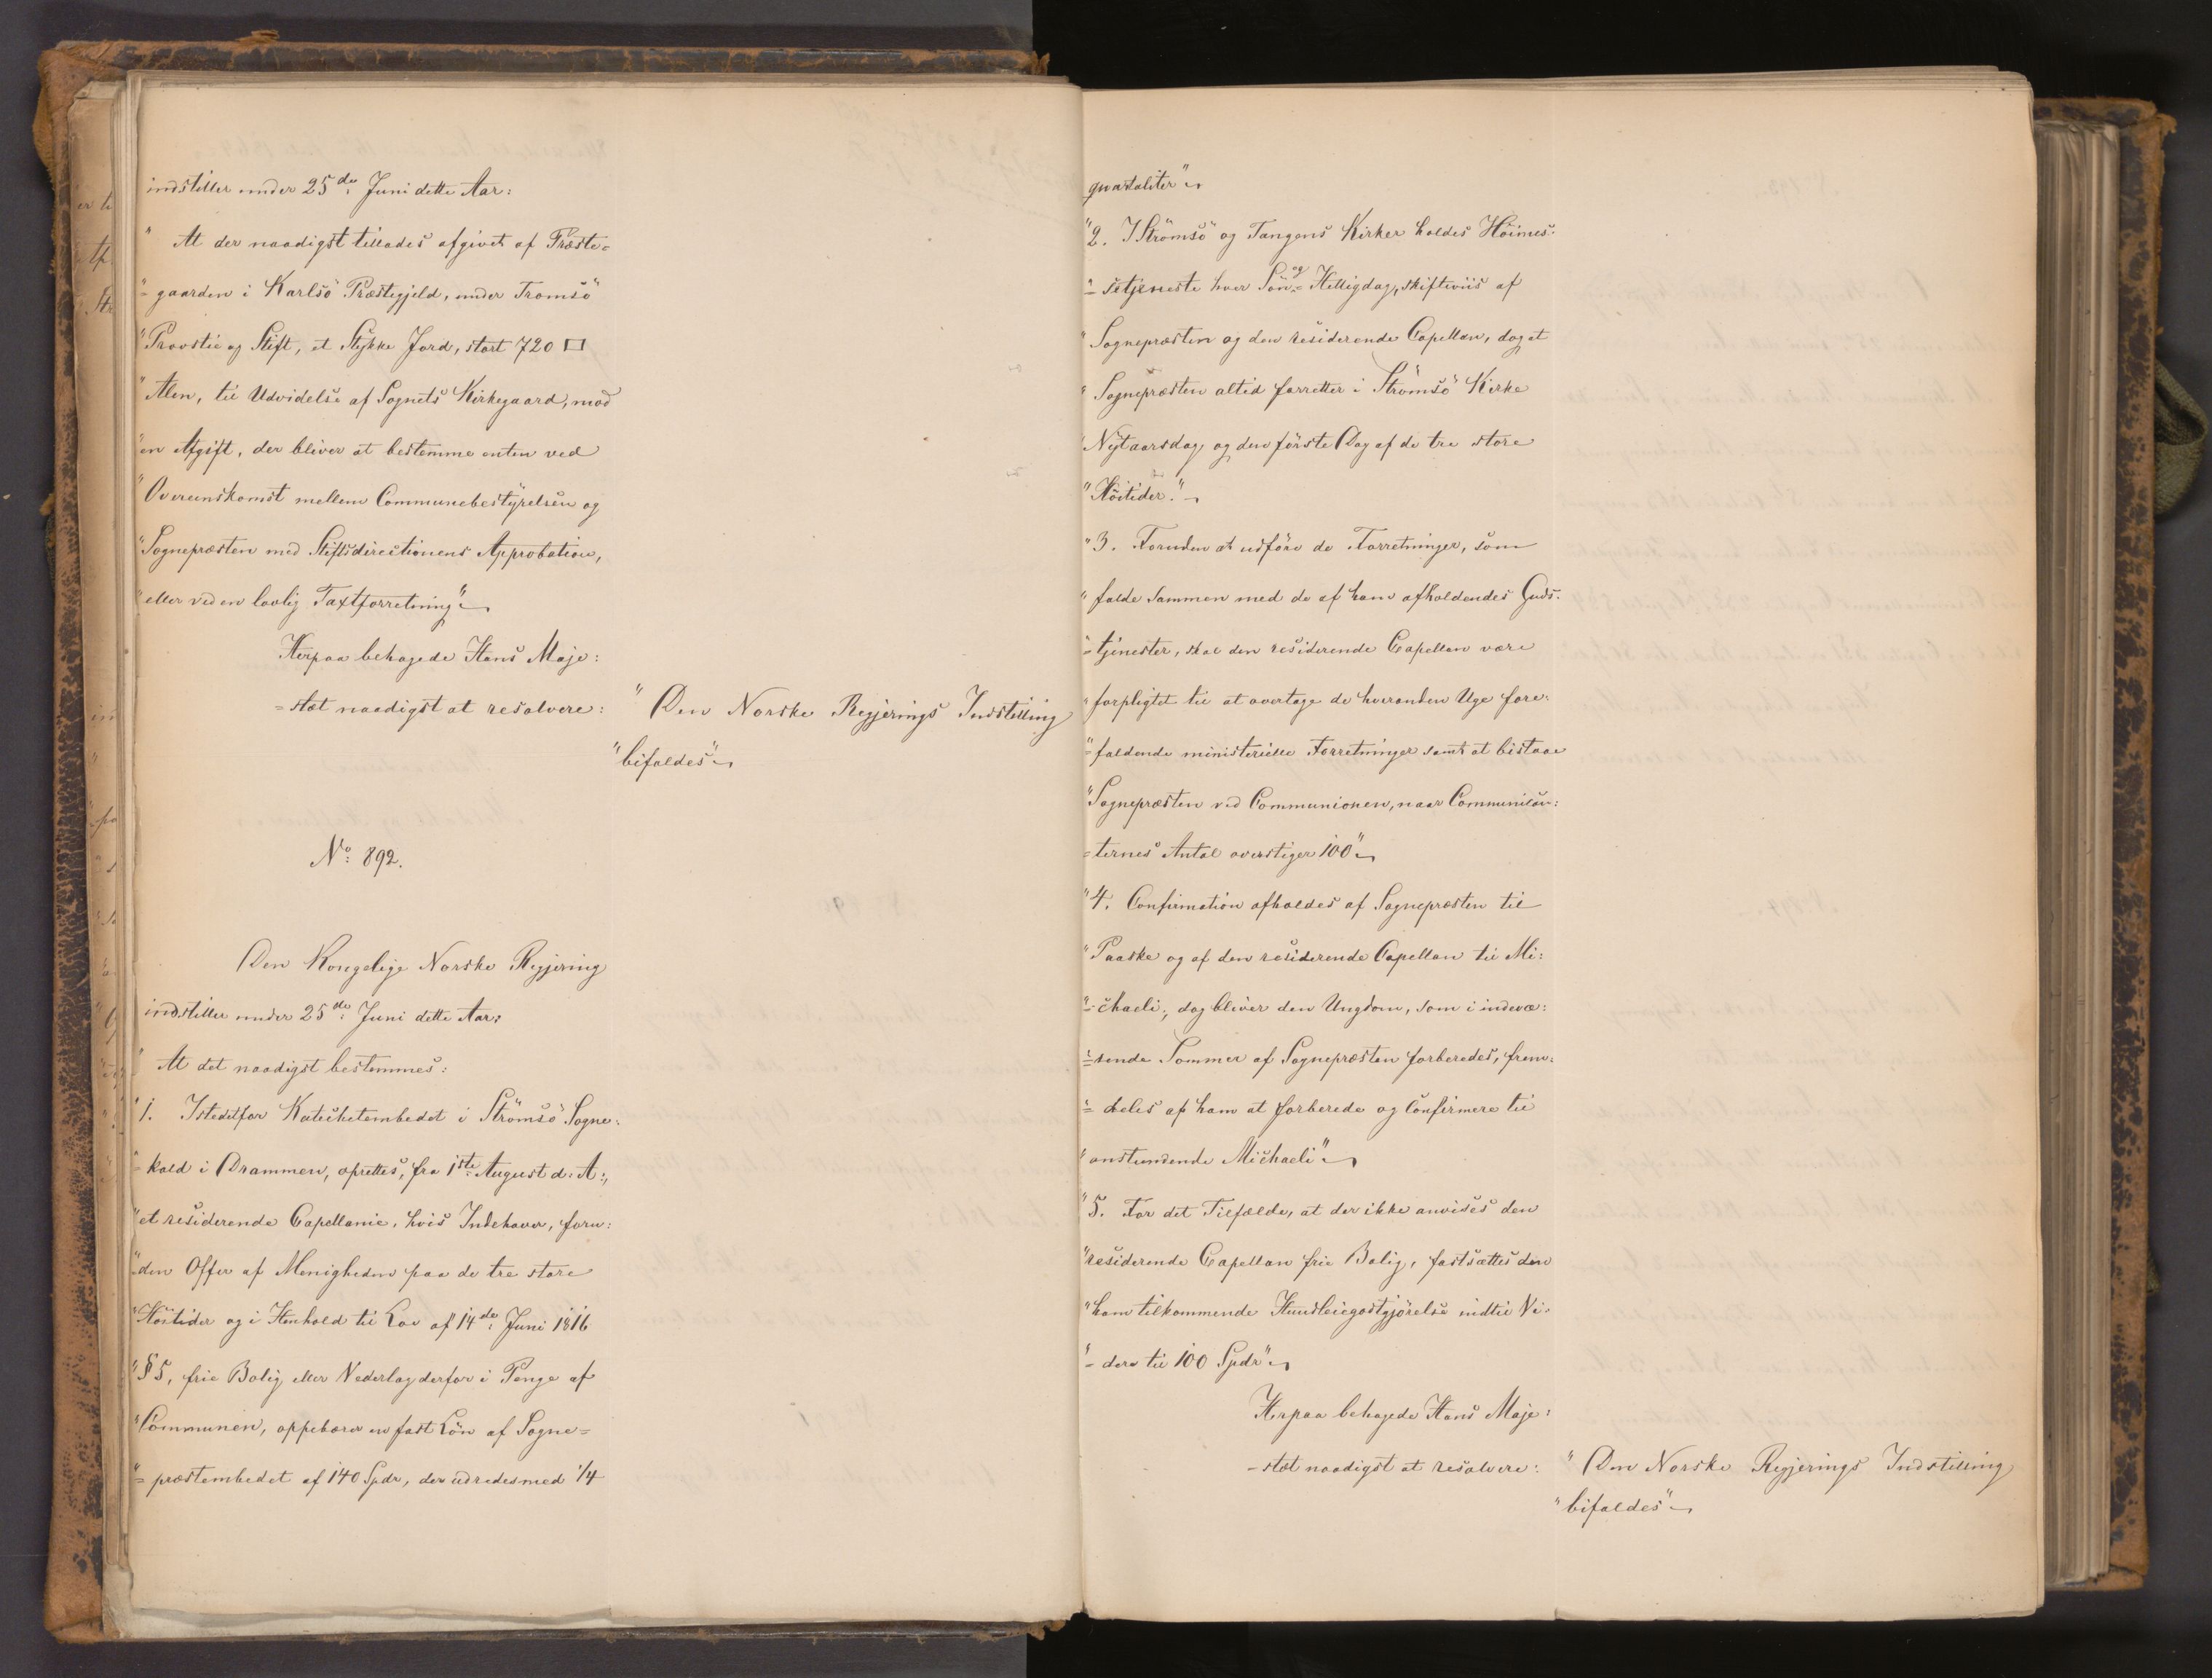 indstiller under 25de Juni dette Aar:
" At der naadigst tillades afgivet af Præste=
"=gaarden i Karlsö Præstegjeld, under Tromsö
"Provstie og Stift, et Stykke Jord, stort 720 □
"Alen, til Udvidelse af Sognets Kirkegaard, mod
"en Afgift, der bliver at bestemme enten ved
"Overeenskomst mellem Communebestyrelsen og
"Sognepræsten med Stiftsdirectionens Approbation,
"eller ved en lovlig Taxtforretning"
Herpaa behagede Hans Maje:
=stæt naadigst at resolvere:
"Den Norske Regjerings Indstilling
"bifaldes"
No: 892.
Den Kongelige Norske Regjering
indstiller under 25de: Juni dette Aar:
" At det naadigst bestemmes:
"1. Istedetfor Katechetembedet i Strömsö Sogne:
"=kald i Drammen, oprettes, fra 1ste August d: A:,
"et residerende Capellanie, hvis Indehaver, foru:
"den Offer af Menigheden paa de tre store
"Höitider og i Henhold til Lov af 14de: Juni 1816
"§ 5, frie Bolig eller Vederlag derfor i Penge af
"Communen, oppebærer en fast Lön af Sogne=
"=præstembedet af 140 Spdr, der udredes med 1/4
qvartaliter"
"2. I Strömsö og Tangens Kirker holdes Höimes:
"=setjeneste hver Sön= og Helligdag, skifteviis af
"Sognepræsten og den residerende Capellan, dog at
"Sognepræsten altid forretter i Strömsö Kirke
"Nytaarsdag og den förste Dag af de tre store
"Höitider."
"3. Foruden at udföre de Forretninger, som
"falde sammen med de af ham afholdendes Guds:
"=tjenester, skal den residerende Capellan være
"forpligtet til at overtage de hveranden Uge fore:
"=faldende ministerielle Forretninger samt at bistaae
"Sognepræsten ved Communionen, naar Communican:
"=ternes Antal overstiger 100"
"4. Confirmation afholdes af Sognepræsten til
"Paaske og af den residerende Capellan til Mi:
"=chaeli; dog bliver den Ungdom, som i indevæ:
"=rende Sommer af Sognepræsten forberedes, frem:
"=deles af ham at forberede og Confirmere til
"anstundende Michaeli"
"5. For det Tilfælde, at der ikke anvises den
"residerende Capellan frie Bolig, fastsættes den
"ham tilkommende Huusleiegodtgjörelse indtil Vi:
"=dere til 100 Spdr"
Herpaa behagede Hans Maje:
=stæt naadigst at resolvere:
"Den Norske Regjerings Indstilling
"bifaldes"